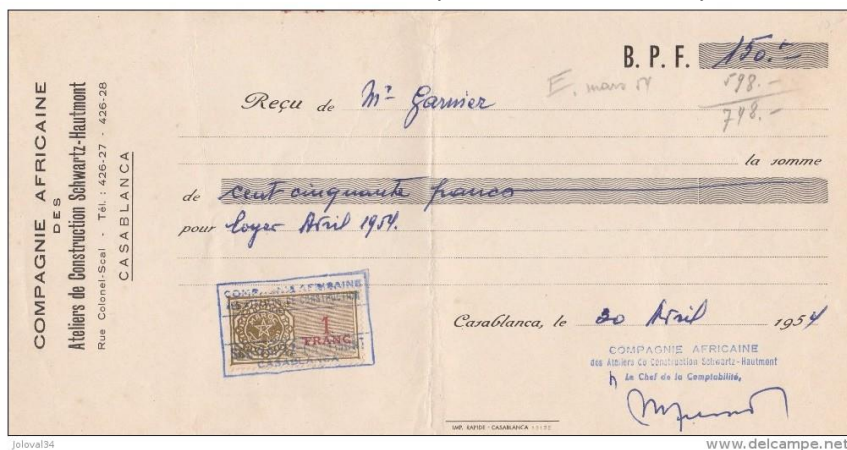 COMPAGNIE AFRICAINE
DES
Ateliers de Construction Schwartz-Hautmont
Rue Colonel-Scal - Tél. : 426-27 - 426-28
CASABLANCA
B. P. F. 150.-
E. mars 54
598.-
748.-
Reçu de Mr Garnier
la somme
de cent cinquante francs
pour loyer Avril 1954.
COMPAGNIE AFRICAINE
DES ATELIERS DE CONSTRUCTION
1
FRANC
CASABLANCA
Casablanca, le 20 Avril 1954
COMPAGNIE AFRICAINE
des Ateliers de Construction Schwartz-Hautmont
Le Chef de la Comptabilité,
IMP. RAPIDE - CASABLANCA
joloval34
www.delcampe.net